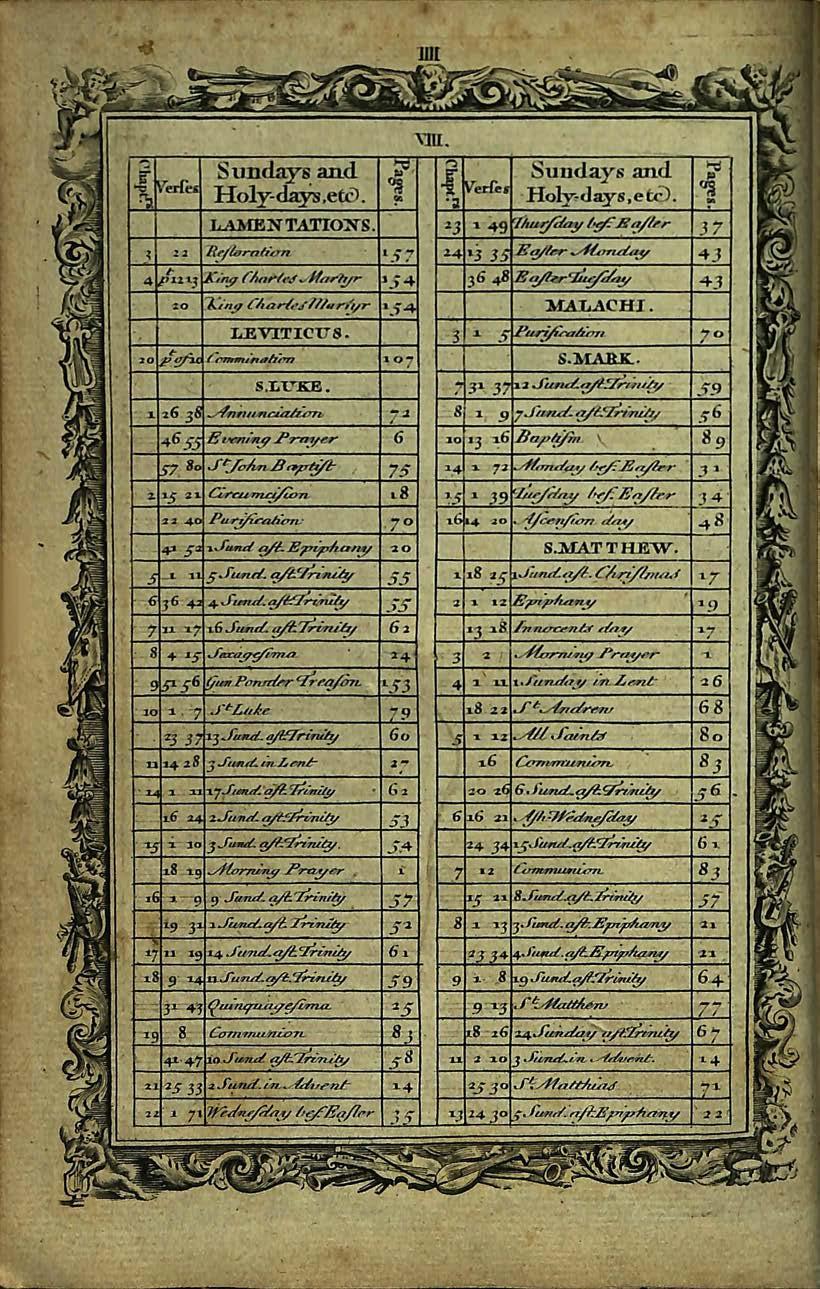 IIII
VIII.
Chapt.rs Verſes Sundays and Holy-days, etc). Pages.
LAMENTATIONS.
3 22 Reſtoration 157
4 pt 12 13 King Charles Martyr 154
20 King Charles Martyr 154
LEVITICUS.
20 pt of 10 Commination 107
S.LUKE.
1 26 38 Annunciation 72
46 55 Evening Prayer 6
57 80 St John Baptiſt 75
2 15 21 Circumciſion 18
22 40 Purification 70
41 52 1 Sund aft. Epiphany 20
5 1 11 5 Sund. aft. Trinity 55
6 36 42 4 Sund. aft. Trinity 55
7 11 17 16 Sund. aft. Trinity 62
8 4 15 Sexageſima 24
9 51 56 Gun Powder Treaſon 153
10 1 7 St Luke 79
23 37 13 Sund. aft. Trinity 60
11 14 28 3 Sund. in Lent 27
14 1 11 17 Sund. aft. Trinity 62
16 24 2 Sund. aft. Trinity 53
15 1 10 3 Sund. aft. Trinity. 54
18 19 Morning Prayer 1
16 1 9 9 Sund. aft. Trinity 57
19 31 1 Sund. aft. Trinity 52
17 11 19 14 Sund. aft. Trinity 61
18 9 14 11 Sund. aft. Trinity 59
31 43 Quinquageſima 25
19 8 Communion 83
41 47 10 Sund aft. Trinity 58
21 25 33 2 Sund. in Advent 14
22 1 71 Wedneſday beſ. Eaſter 35
Chapt.rs Verſes Sundays and Holy-days, etc). Pages.
23 1 49 Thurſday beſ. Eaſter 37
24 13 35 Eaſter Monday 43
36 48 Eaſter Tueſday 43
MALACHI.
3 1 5 Purification 70
S.MARK.
7 31 37 12 Sund. aft. Trinity 59
8 1 9 7 Sund. aft. Trinity 56
10 13 16 Baptiſm 89
14 1 72 Monday beſ. Eaſter 31
15 1 39 Tueſday beſ. Eaſter 34
16 14 20 Aſcenſion day 48
S.MATTHEW.
1 18 25 1 Sund. aft. Chriſtmas 17
2 1 12 Epiphany 19
13 18 Innocents day 17
3 2 Morning Prayer 1
4 1 11 1 Sunday in Lent 26
18 22 St Andrew 68
5 1 12 All Saints 80
16 Communion 83
20 26 6 Sund. aft. Trinity 56
6 16 21 Aſh-Wedneſday 25
24 34 15 Sund. aft. Trinity 61
7 12 Communion 83
15 21 8 Sund. aft. Trinity 57
8 1 13 3 Sund. aft. Epiphany 21
23 34 4 Sund. aft. Epiphany 21
9 1 8 19 Sund. aft. Trinity 64
9 13 St Matthew 77
18 26 24 Sunday aft Trinity 67
11 2 10 3 Sund. in Advent. 14
25 30 St. Matthias 71
13 24 30 5 Sund. aft. Epiphany 22